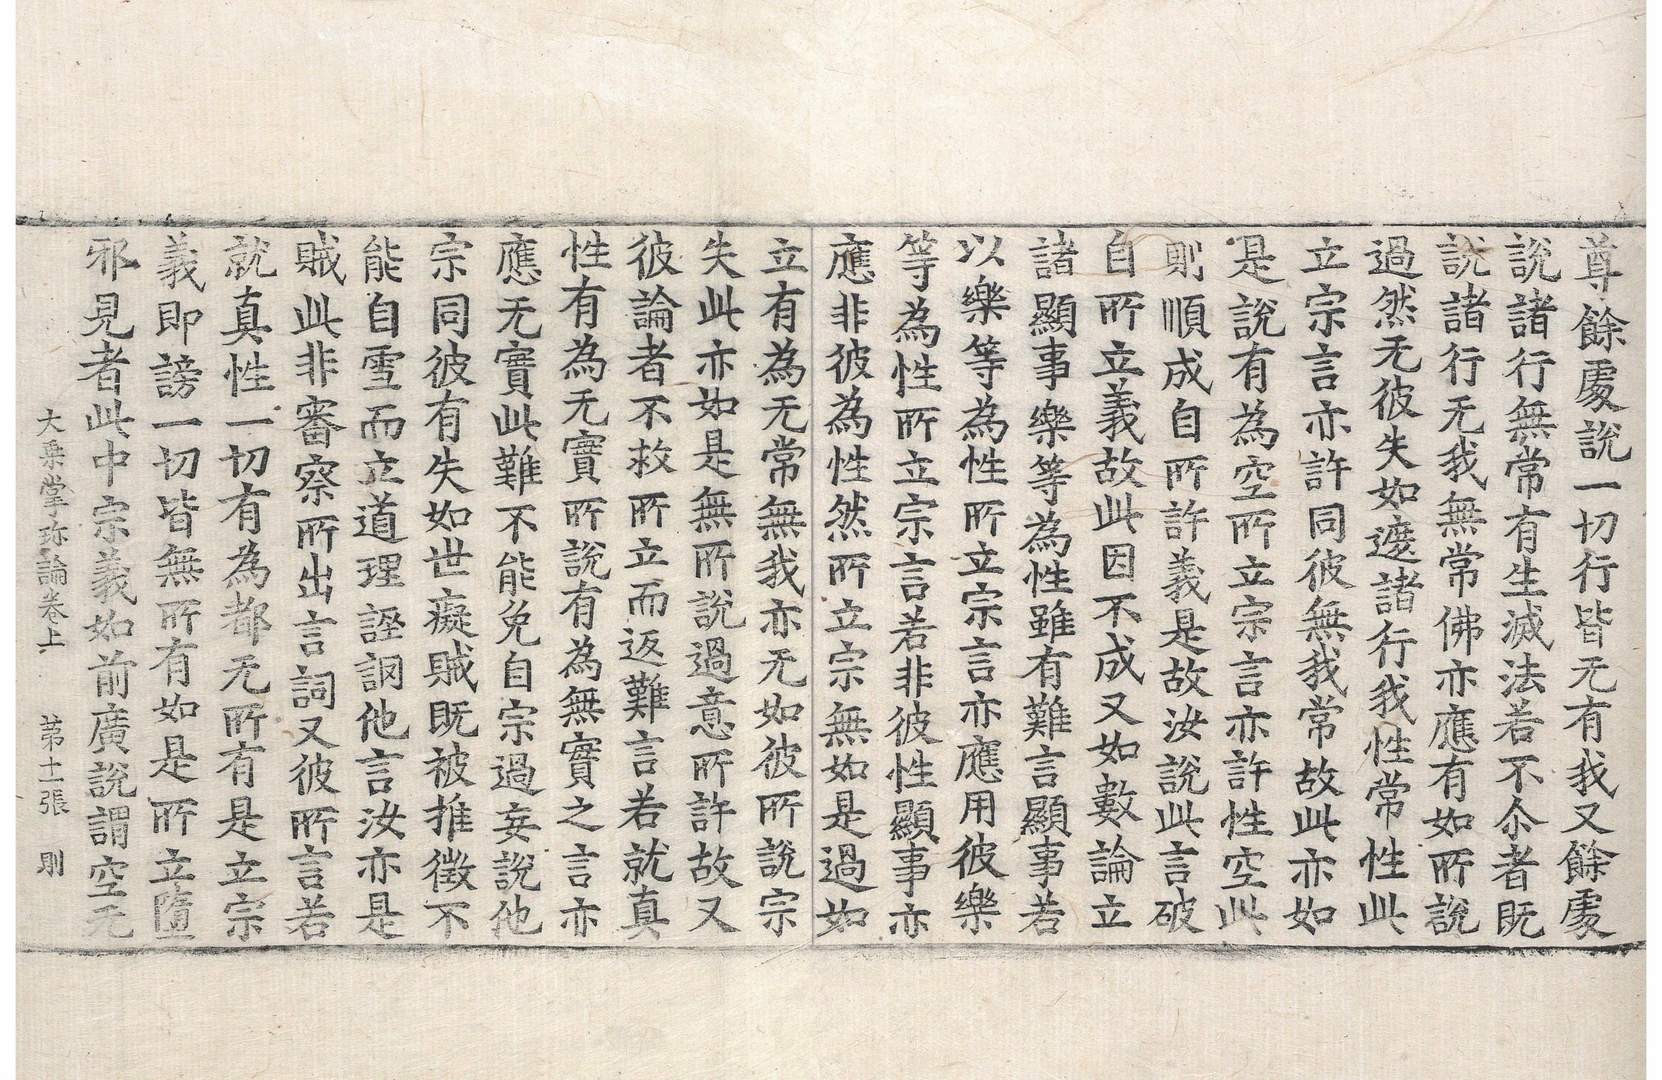 尊餘處說一切行皆无有我又餘處
說諸行無常有生滅法若不尒者既
說諸行无我無常佛亦應有如所說
過然无彼失如遮諸行我性常性此
立宗言亦許同彼無我常故此亦如
是說有為空所立宗言亦許性空此
則順成自所許義是故汝說此言破
自所立義故此因不成又如數論立
諸顯事樂等為性雖有難言顯事若
以樂等為性所立宗言亦應用彼樂
等為性所立宗言若非彼性顯事亦
應非彼為性然所立宗無如是過如
立有為无常無我亦无如彼所說宗
失此亦如是無所說過意所許故又
彼論者不救所立而返難言若就真
性有為无實所說有為無實之言亦
應无實此難不能免自宗過妄說他
宗同彼有失如世癡賊既被推徵不
能自雪而立道理誣調他言汝亦是
賊此非審察所出言詞又彼所言若
就真性一切有為都无所有是立宗
義即謗一切皆無所有如是所立墮
邪見者此中宗義如前廣說謂空无
大乘掌珍論卷上 第十一張 則